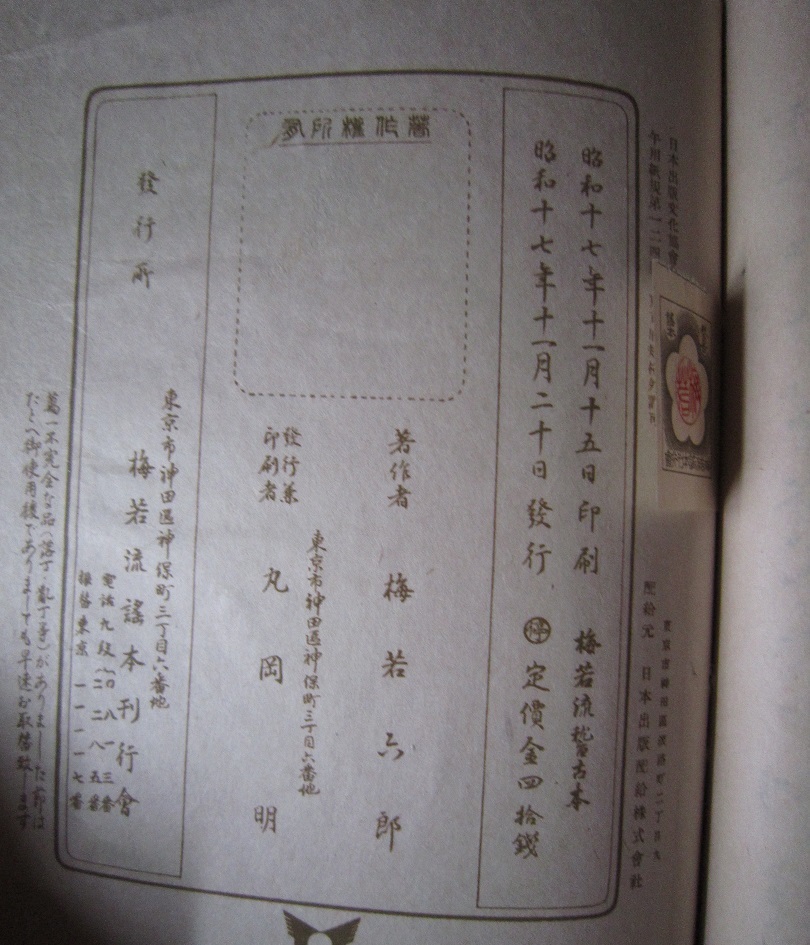 日本出版文化協會
年用紙規第一二四
配給元 日本出版配給株式會社
昭和十七年十一月十五日印刷 梅若流稽古本
昭和十七年十一月二十日發行 ㊕ 定價金四拾錢
著作權所有
著作者 梅若六郎
東京市神田區神保町三丁目六番地
發行兼
印刷者 丸岡明
發行所
東京市神田區神保町三丁目六番地
梅若流謠本刊行會
電話九段
振替東京
萬一不完全な品(落丁・亂丁等)がありました節は
たとへ御使用後でありましても早速お取替致します